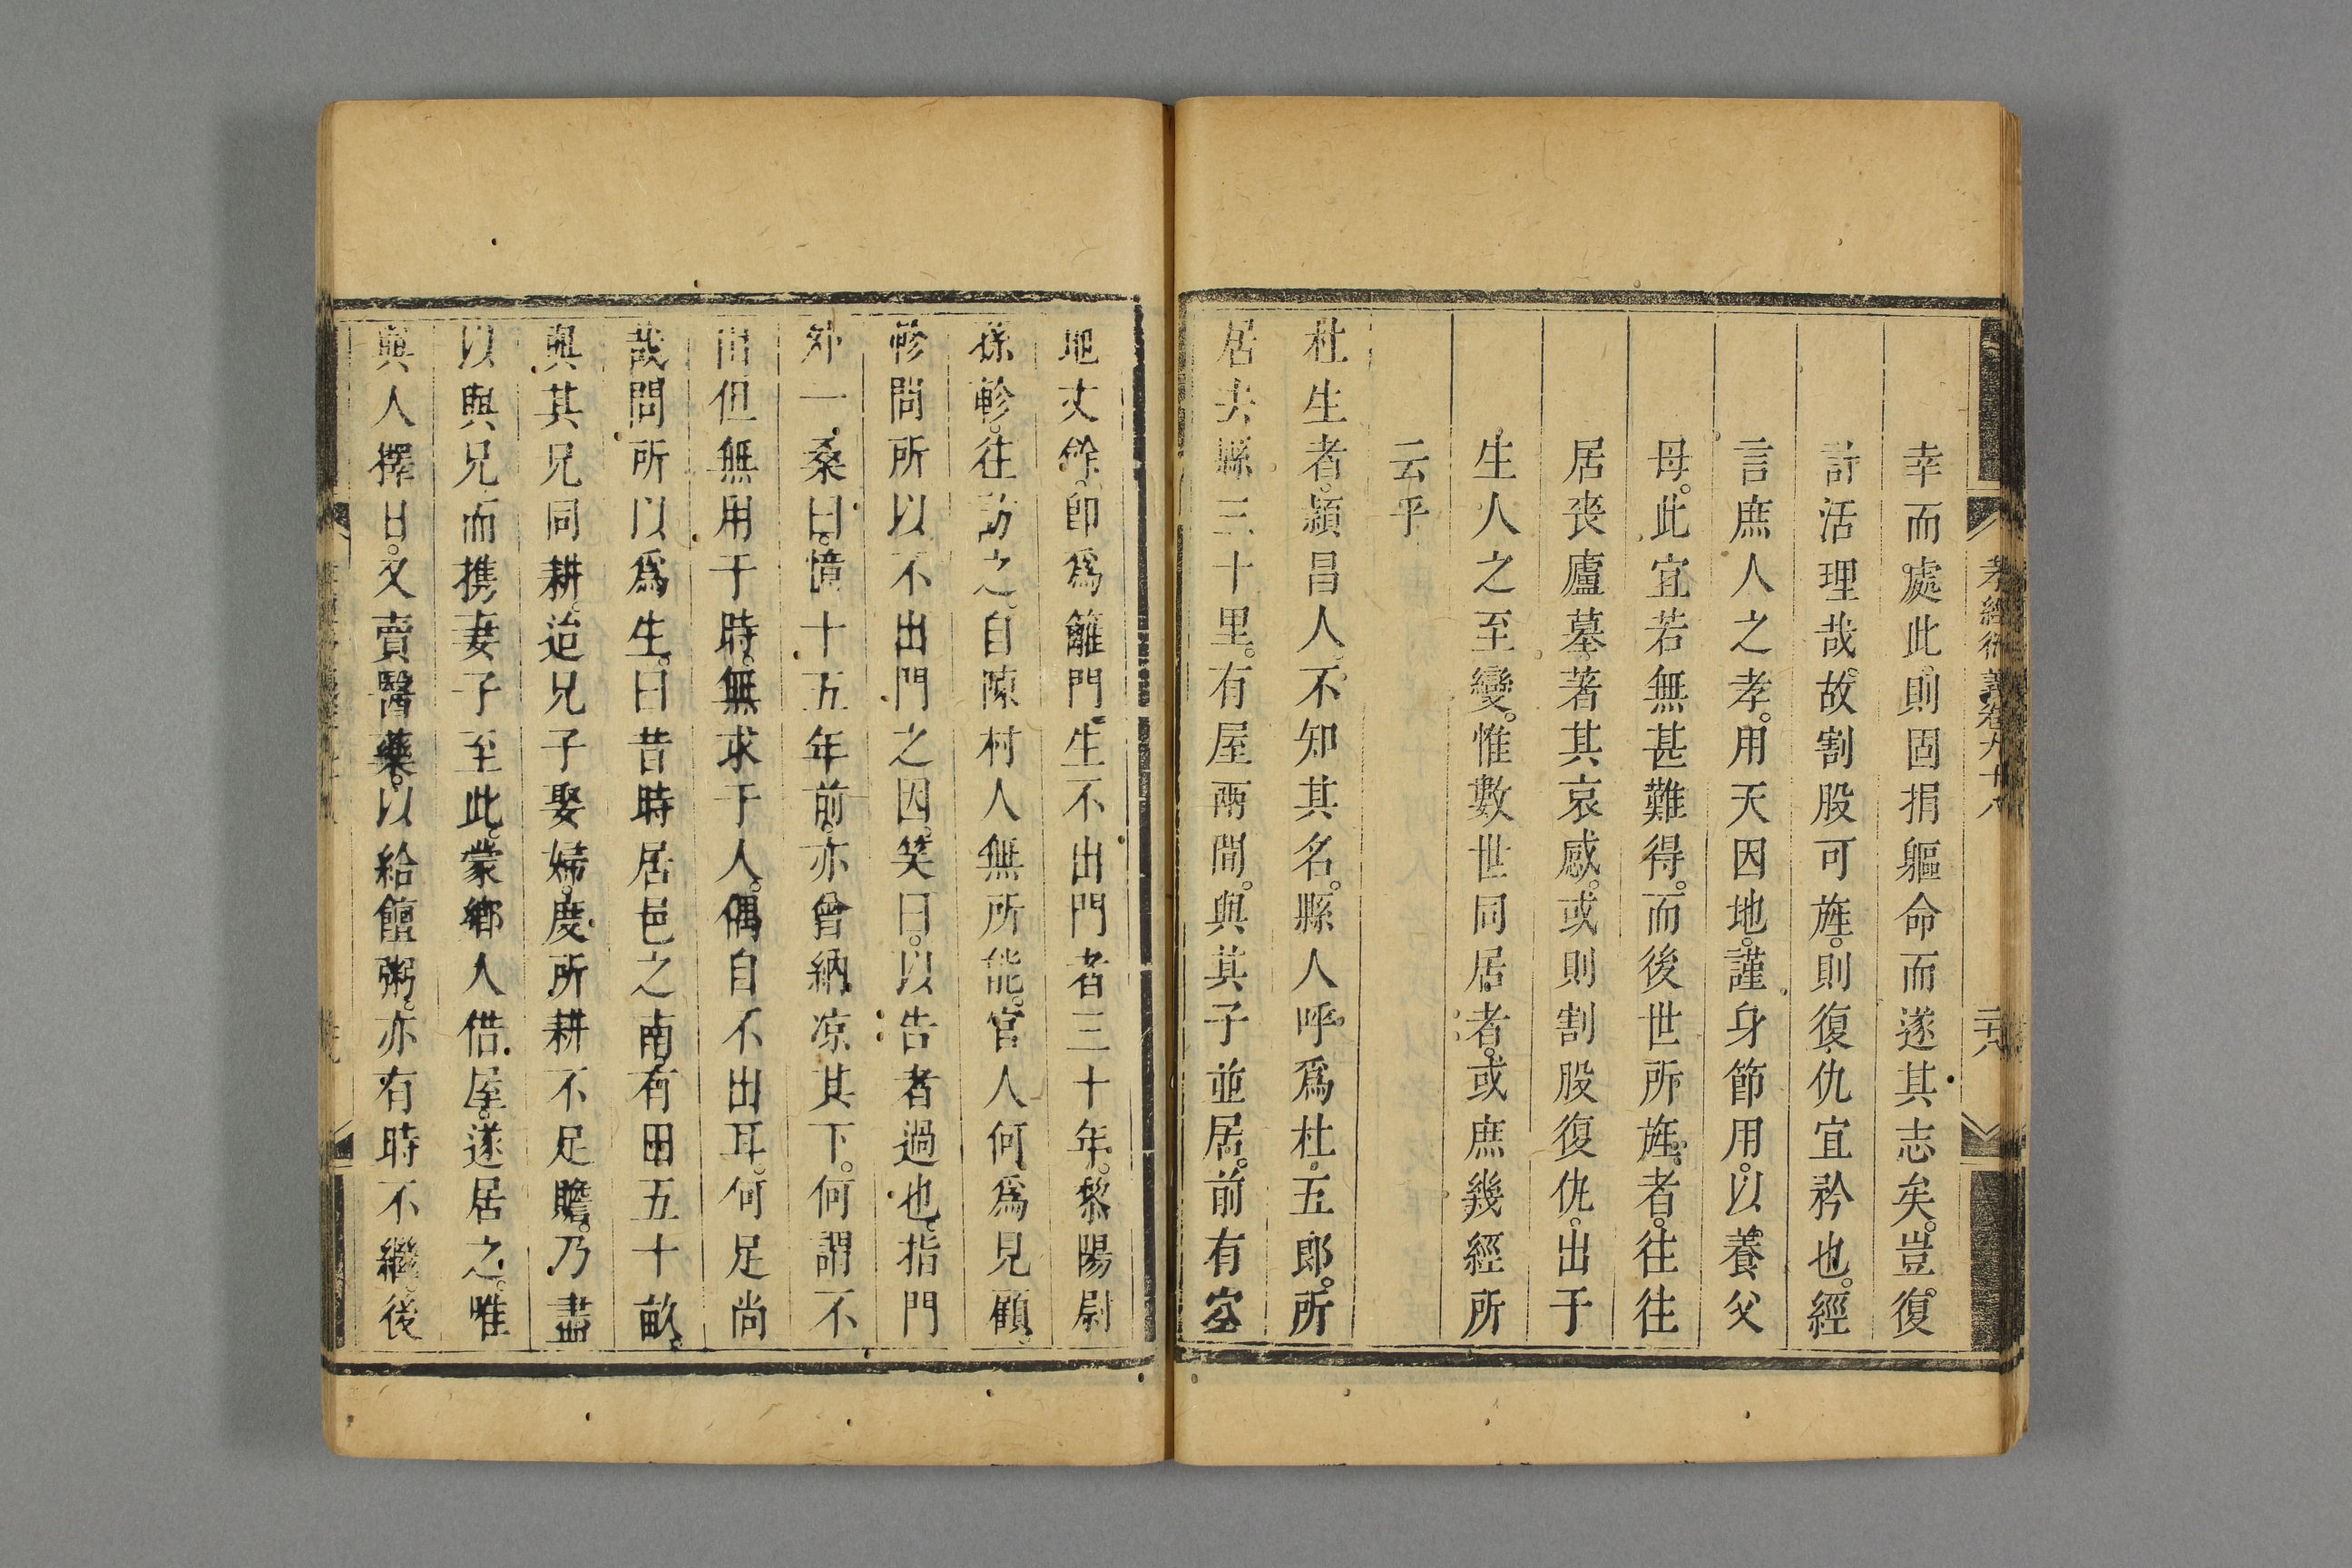 孝經衍義卷九十八
二十八
幸而處此則固捐軀命而遂其志矣豈復
計活理哉故割股可旌則復仇宜矜也經
言庶人之孝用天因地謹身節用以養父
母此宜若無甚難得而後世所旌者往往
居喪廬墓著其哀感或則割股復仇出于
生人之至變惟數世同居者或庶幾經所
云乎
杜生者潁昌人不知其名縣人呼爲杜五郎所
居去縣三十里有屋兩間與其子並居前有空
地丈餘即爲籬門生不出門者三十年黎陽尉
孫軫往訪之自陳村人無所能官人何爲見顧
軫問所以不出門之因笑曰以告者過也指門
外一桑曰憶十五年前亦曾納凉其下何謂不
出但無用于時無求于人偶自不出耳何足尚
哉問所以爲生曰昔時居邑之南有田五十畝
與其兄同耕迨兄子娶婦度所耕不足贍乃盡
以與兄而携妻子至此蒙鄉人借屋遂居之唯
與人擇日又賣醫藥以給饘粥亦有時不繼後